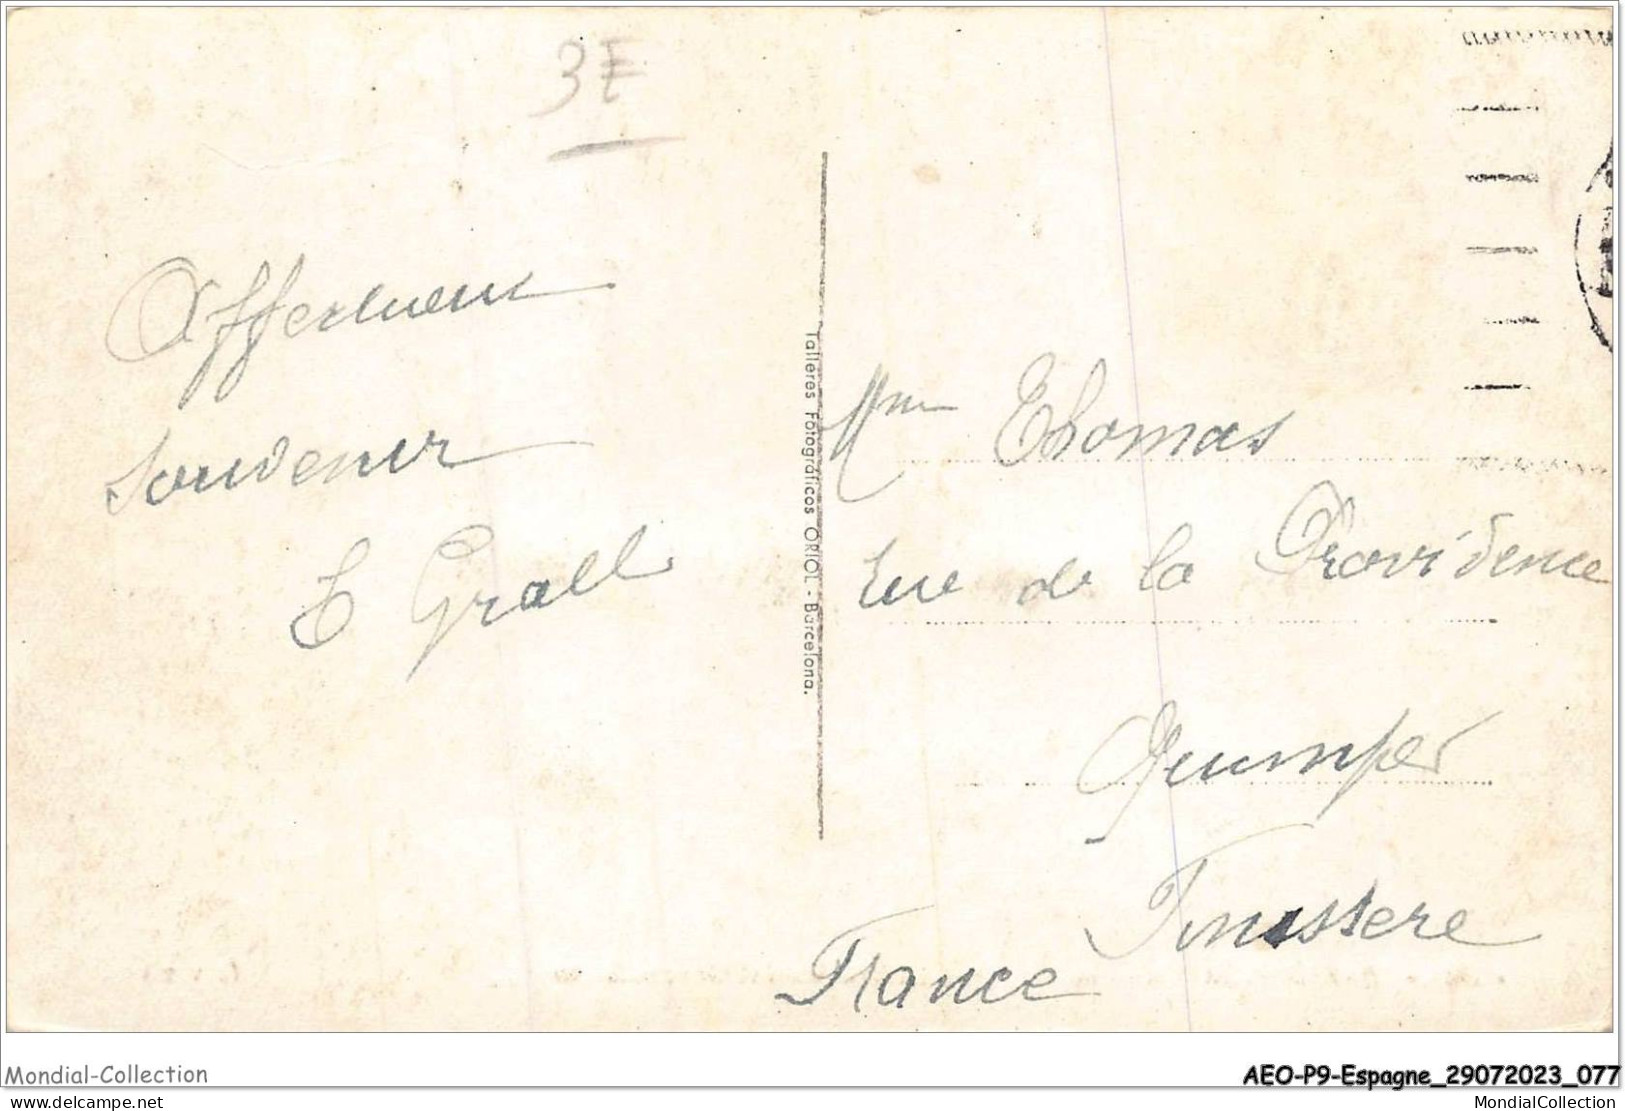 3E
Affectueux
souvenir
E Grall
Talleres Fotográficos ORIOL - Barcelona.
Mme Thomas
rue de la Providence
Quimper
Finistere
France
Mondial-Collection
AEO-P9-Espagne_29072023_077
www.delcampe.net
MondialCollection